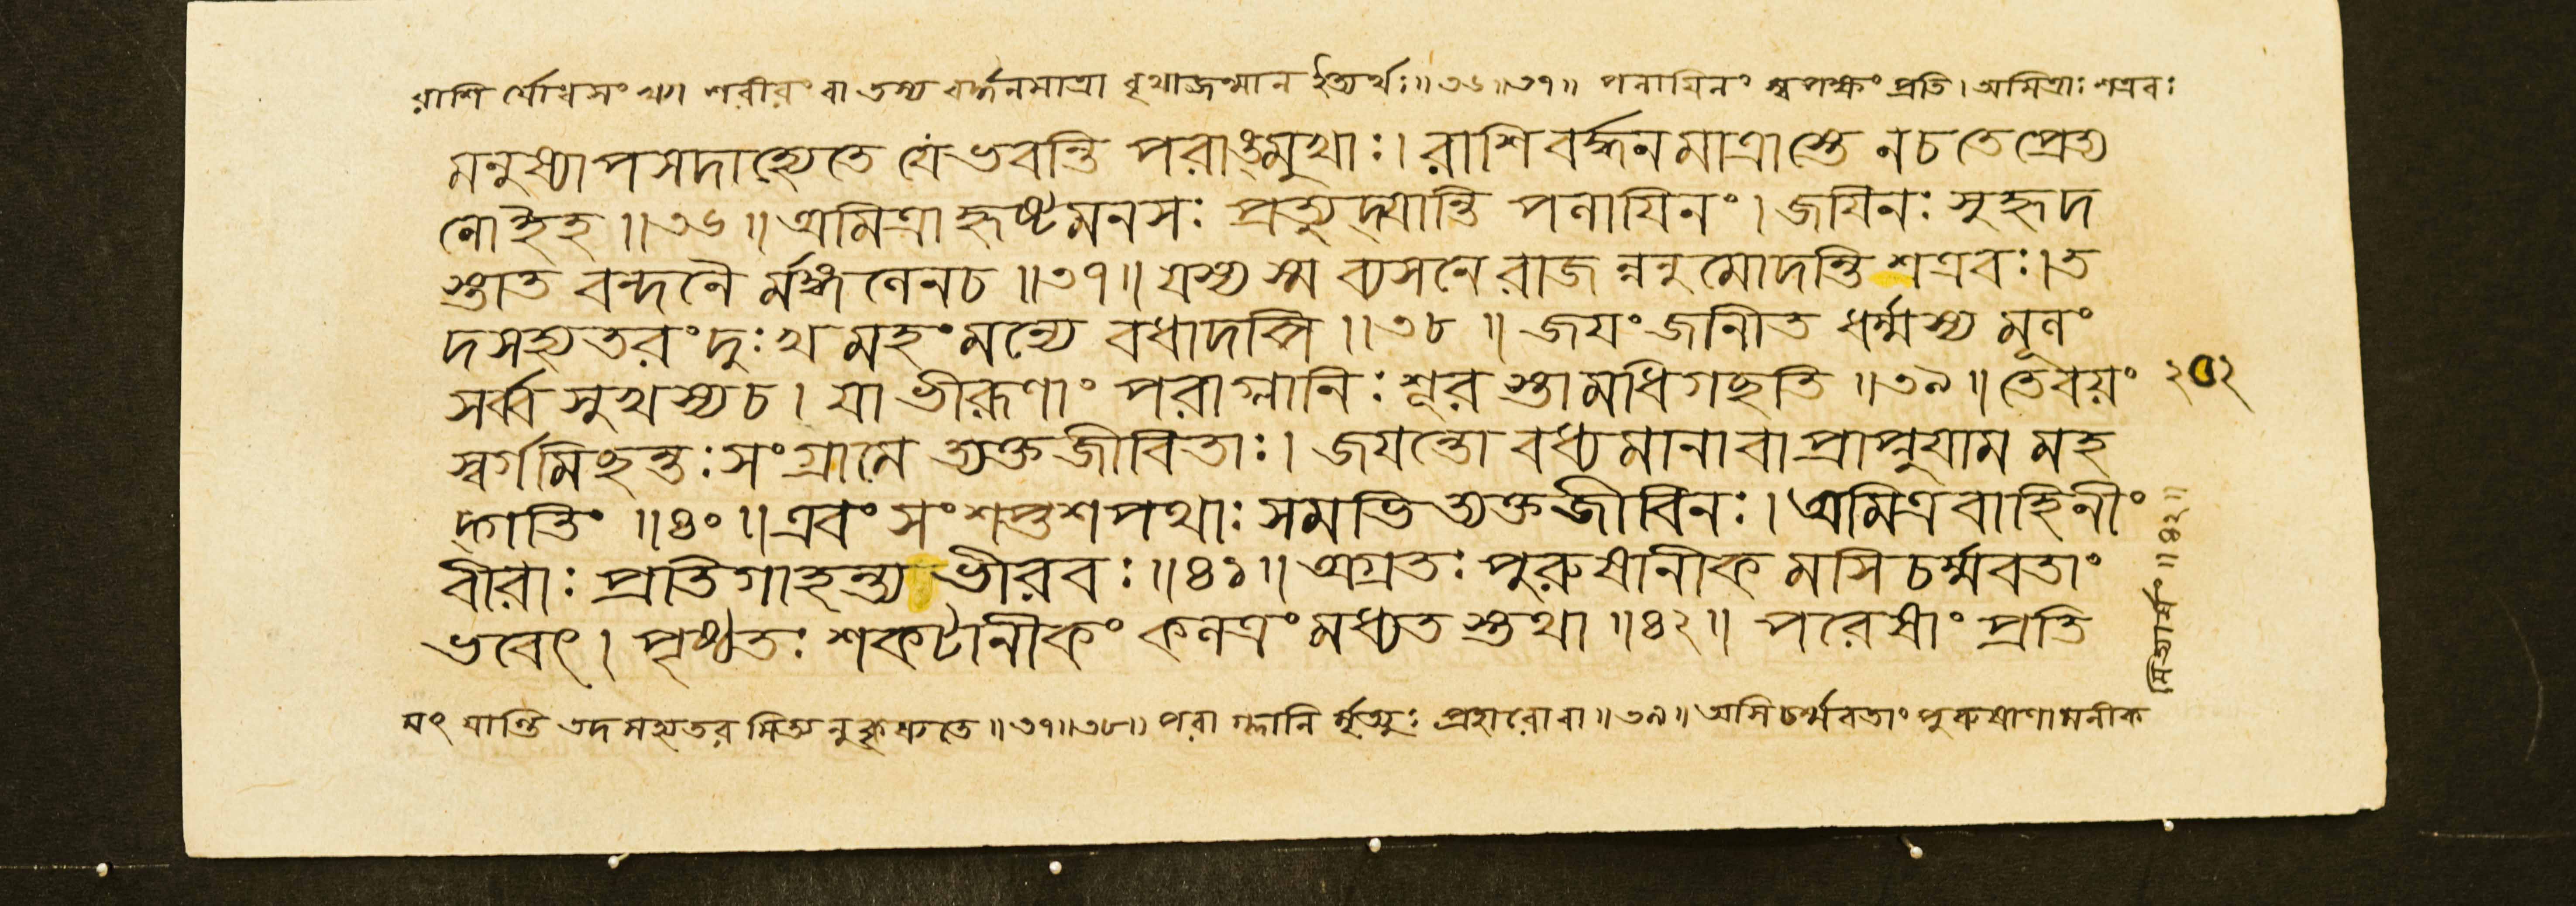 রাশি র্যোধসংখ্যা শরীরং বা তস্য বর্দ্ধনমাত্রা বৃথাজন্মান ইত্যর্থঃ॥৩৬॥৩৭॥ পলায়িনং স্বপক্ষং প্রতি। অমিত্রাঃ শত্রবঃ
মনুষ্যাপসদাহ্যেতে যেভবন্তি পরাঙ্মুখাঃ। রাশিবর্দ্ধনমাত্রাস্তে নচতেপ্রেত্য
নোইহ ॥৩৬॥ অমিত্রাহৃষ্টমনসঃ প্রত্যুদ্যান্তি পলাযিনং। জযিনঃ সুহৃদ
স্তাত বন্দনৈ র্মঙ্গলেনচ ॥৩৭॥ যস্য স্ম ব্যসনে রাজ ন্ননুমোদন্তি শত্রবঃ। ত
দসহ্যতরংদুঃখ মহংমন্যে বধাদপি ॥৩৮॥ জযংজানীত ধর্ম্মস্য মূলং
সর্ব্ব সুখস্যচ। যা ভীরূণাং পরাগ্লানিঃ শূর স্তামধিগছতি ॥৩৯॥ তেবয়ং
২০২
স্বর্গমিছন্তঃ সংগ্রামে ত্যক্তজীবিতাঃ। জযন্তো বধ্যমানা বা প্রাপ্নুযাম মহ
দ্গতিং ॥৪০॥ এবং সংশপ্তশপথাঃ সমভিত্যক্তজীবিনঃ। অমিত্রবাহিনীং
বীরাঃ প্রতিগাহন্ত্য ভীরবঃ ॥৪১॥ অগ্রতঃ পুরুষানীক মসি চর্ম্মবতাং
ভবেৎ। পৃষ্ঠতঃ শকটানীকং কলত্রং মধ্যত স্তথা ॥৪২॥ পরেষাং প্রতি
মিত্যর্থঃ ॥৪২॥
যৎ যান্তি তদসহ্যতর মিত্যনুকৃষ্যতে ॥৩৭॥৩৮॥ পরা গ্লানি র্মৃত্যুঃ প্রহারোবা ॥৩৯॥ অসিচর্ম্মবতাং পুরুষাণামনীক